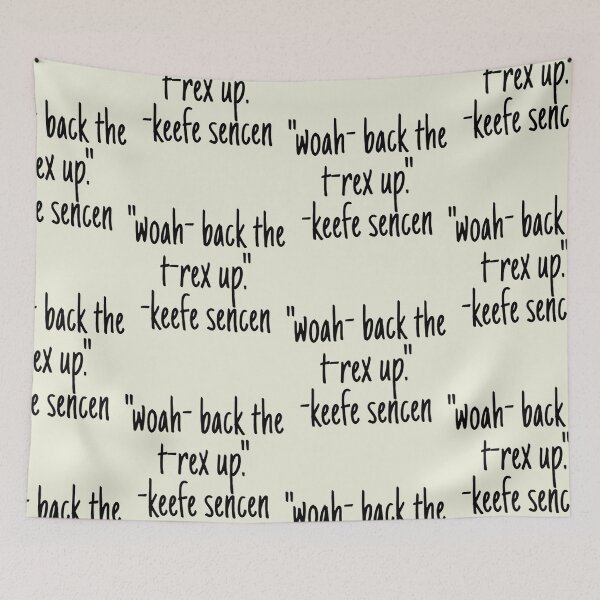 t-rex up.
-keefe sencen
t-rex up.
-keefe senc
back the
ex up."
e sencen
"woah- back the
t-rex up."
-keefe sencen
"woah- back the
t-rex up."
-keefe sencen
"woah- back
t-rex up."
-keefe senc
back the
ex up."
e sencen
"woah- back the
t-rex up."
-keefe sencen
"woah- back the
t-rex up."
-keefe sencen
"woah- back
t-rex up."
-keefe senc
back the
"woah- back the